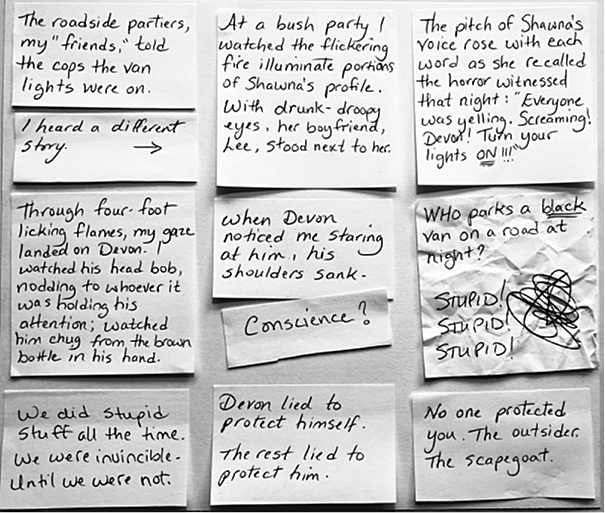 The roadside partiers,
my "friends," told
the cops the van
lights were on.
I heard a different
story. →
At a bush party I
watched the flickering
fire illuminate portions
of Shawna's profile.
With drunk-droopy
eyes, her boyfriend,
Lee, stood next to her.
The pitch of Shawna's
voice rose with each
word as she recalled
the horror witnessed
that night: "Everyone
was yelling. Screaming!
Devon! Turn your
lights ON!!!"
Through four-foot
licking flames, my gaze
landed on Devon. I
watched his head bob,
nodding to whoever it
was holding his
attention; watched
him chug from the brown
bottle in his hand.
When Devon
noticed me staring
at him, his
shoulders sank.
Conscience?
WHO parks a black
van on a road at
night?
STUPID!
STUPID!
STUPID!
We did stupid
stuff all the time.
We were invincible.
Until we were not.
Devon lied to
protect himself.
The rest lied to
protect him.
No one protected
you. The outsider.
The scapegoat.